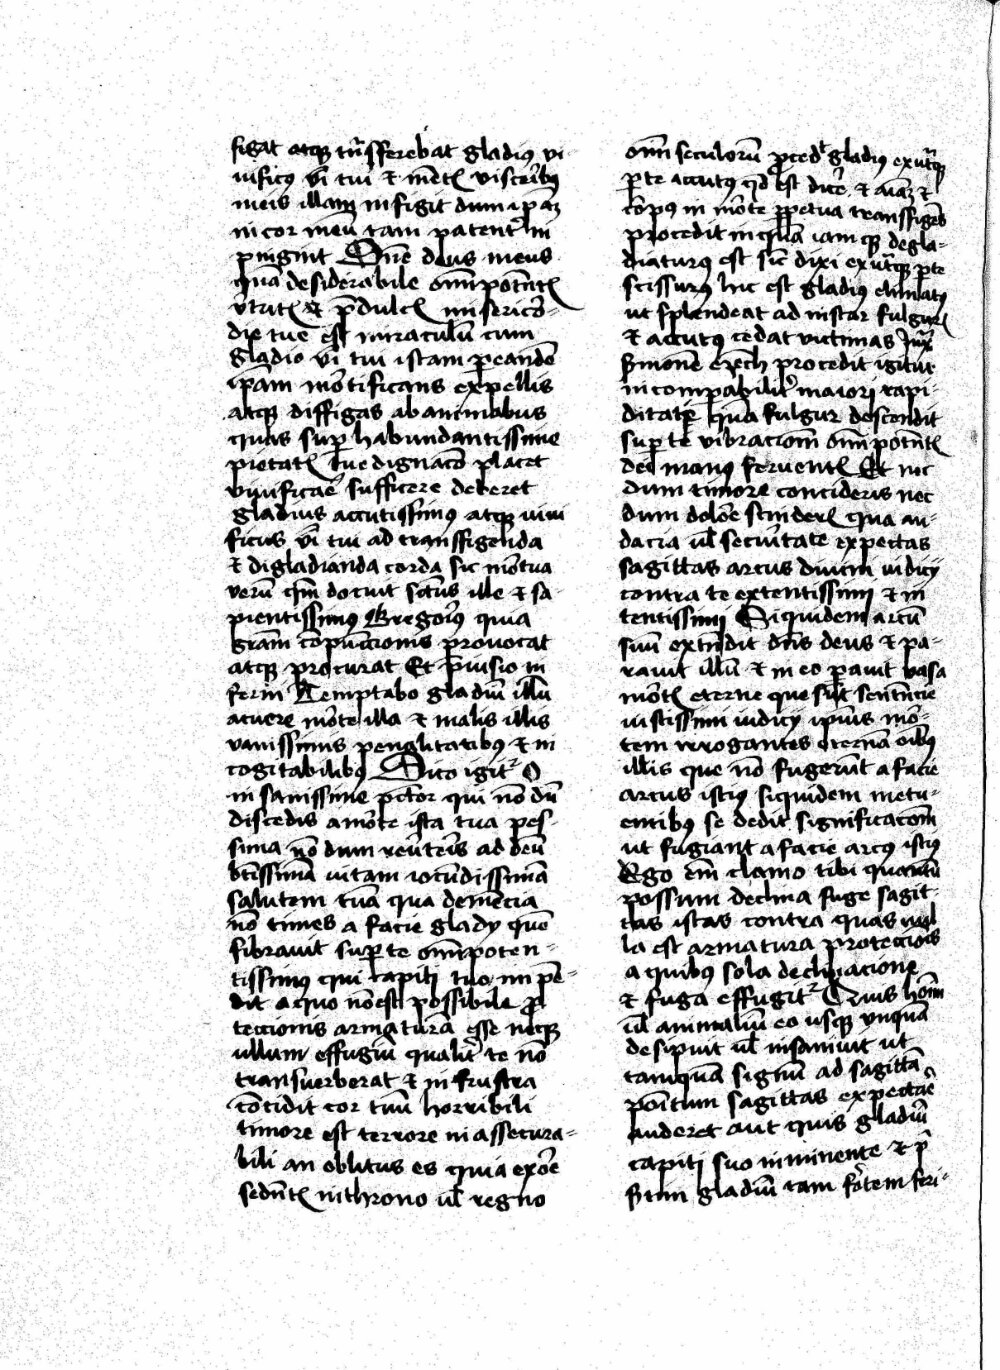 figat atq; tr̄sfferebat gladiꝰ vi
uificꝰ v̄i tui ⁊ mētꝭ viscēibꝰ
meis illam infigit dum ip̄aꝫ
in cor meū tam patent̄ in
pingint Dn̄e deus meus
quā desiderabile om̄ipotn̄tꝭ
v̄tatꝭ ⁊ p̄dulcꝭ misericō-
die tue est miraculū cum
gladio v̄i tui istam peandō
ip̄am mōtificans expellis
atq; diffigas ab animabus
quas sup̱ habundantissime
pietatꝭ tue dignacō placet
viuificāe sufficere deberet
gladius accutissimꝰ atq; uiui
ficus v̄i tui ad transfigenda
⁊ digladianda corda sic mōtua
verū qm̄ docuit sc̄tus ille ⁊ sa-
pientissimꝰ Gregoīꝰ quia
gram cōpūccionis prouocat
atq; procurat Et p̄uisio in
ferni Temptabo gladiū illū
acuere mōte illa ⁊ malis illis
vanissimis penalitatibꝰ ⁊ in
cogitabilibꝰ Dico igit᷑ O
insanissime pc̄tor qui nō dū
discedis a mōte ista tua pes-
sima nō dum reūteīs ad deū
bt̄issimā uitam iocūdissimā
salutem tuā qua demēcia
nō times a facie gladij quē
fibrauit sup̱ te om̄ipoten-
tissimus qui capiti tuo inpē-
dit a quo nō est possibile pro
teccionis armaturā esse neq;
ullum effugiū qualit̄ te nō
transuerberat ⁊ in frustra
cōcidit cor tuū horribili
timore est terrore inassecura-
bili an oblitus es quia ex oe
sedn̄tꝭ in throno ul̄ regno
om̄i seculorū p̱ced̄t gladiꝰ ex ut̄q;
p̱te accutꝰ qd̄ est dic̄e ⁊ aīaꝫ ⁊
cōpꝰ in mōte p̱petua transfigēs
procedit inquā iam q; degla-
diaturꝰ est sic̄ dixi ex ut̄q; p̱te
scissurꝰ hic est gladiꝰ elimatꝰ
ut splendeat ad instar fulgurꝭ
⁊ accutꝰ cedat victimas Jux̄
s̄monē ezech procedit igitur
incompabilit̄ maiori rapi-
ditate quā fulgur descendit
sup̱ te vibraciom̄ om̄ipotn̄tꝭ
dei manꝰ feruentꝭ Et nec
dum timore concideris nec
dum dolōe scinderꝭ qua au-
dacia ul̄ secuītate expectas
sagittas arcus diuini iudicij
contra te extentissimi ⁊ in
tentissimi Siquidem arcū
suū extn̄dit dn̄s deus ⁊ pa-
rauit illū ⁊ in eo p̱auit vasa
mōtꝭ eterne que sūt sentn̄cie
iustissimi iudicij ipiꝰs mō-
tem irrogantes eternā oībꝰ
illis que nō fugerūt a facie
arcus istiꝰ siquidem metu-
entibꝰ se dedit significacōm
ut fugiant a facie arcꝰ istiꝰ
Ego em̄ clamo tibi quantū
possum declina fuge sagit-
tas istas contra quas nul
la est armatura proteccōis
a quibꝰ sola declinacione
⁊ fuga effugit᷑ Quis hoīm
ul̄ animaliū eo usq; vnquā
desipuit ul̄ insaniuit ut
tamquā signū ad sagittā
pōitum sagittas expectāe
auderet aut quis gladiū
capiti suo iminente ⁊ p̄
s̄tim gladiū tam fōtem feri-